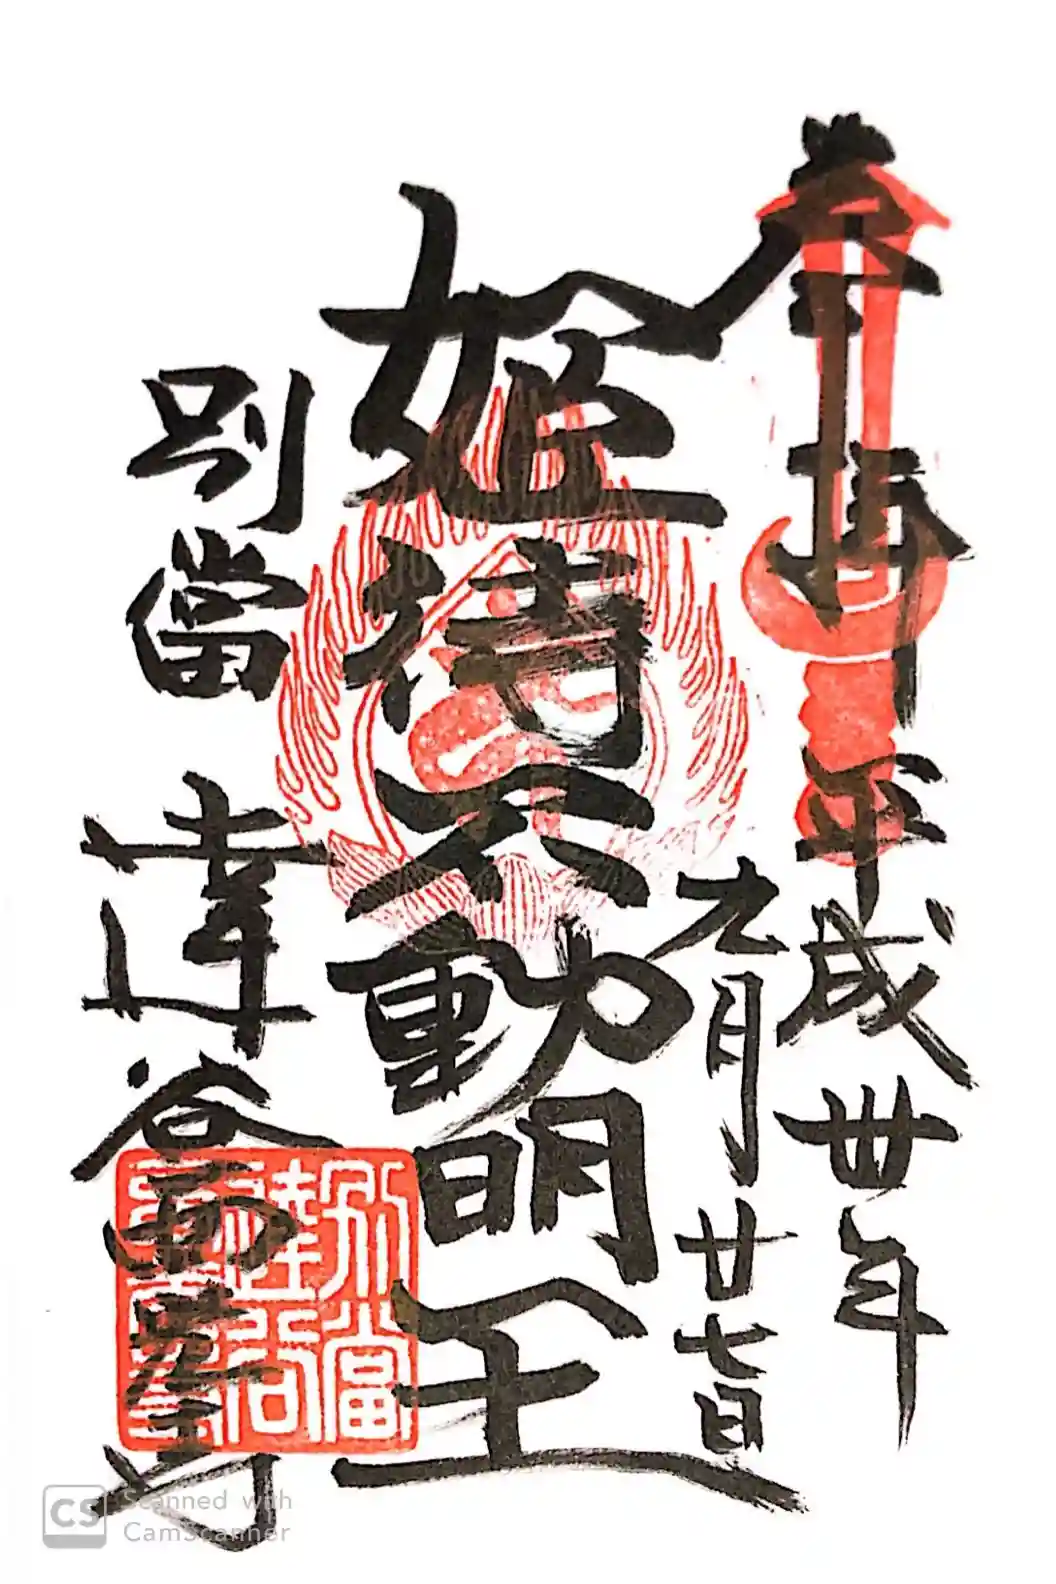 奉拝 平成丗年
九月廿七日
姫待不動明王
別當 達谷西光寺
別當
達谷
Scanned with
CamScanner